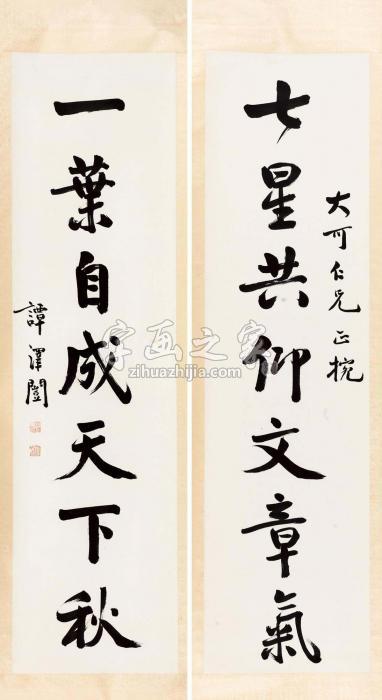 大可仁兄正捥
七星共仰文章氣
一葉自成天下秋
譚澤闓
字画之家
zihuazhijia.com